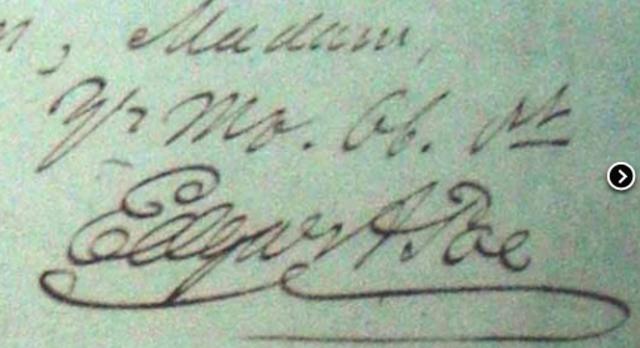 , Madam,
Yr Mo. Ob. St
Edgar A Poe